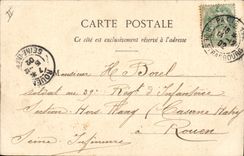 CARTE POSTALE
Ce côté est exclusivement réservé à l'adresse
Monsieur H Borel
soldat au 39e Regt d'Infanterie
Section Hors Rang (Caserne Hatry)
à Rouen
Seine Inférieure
ROUEN